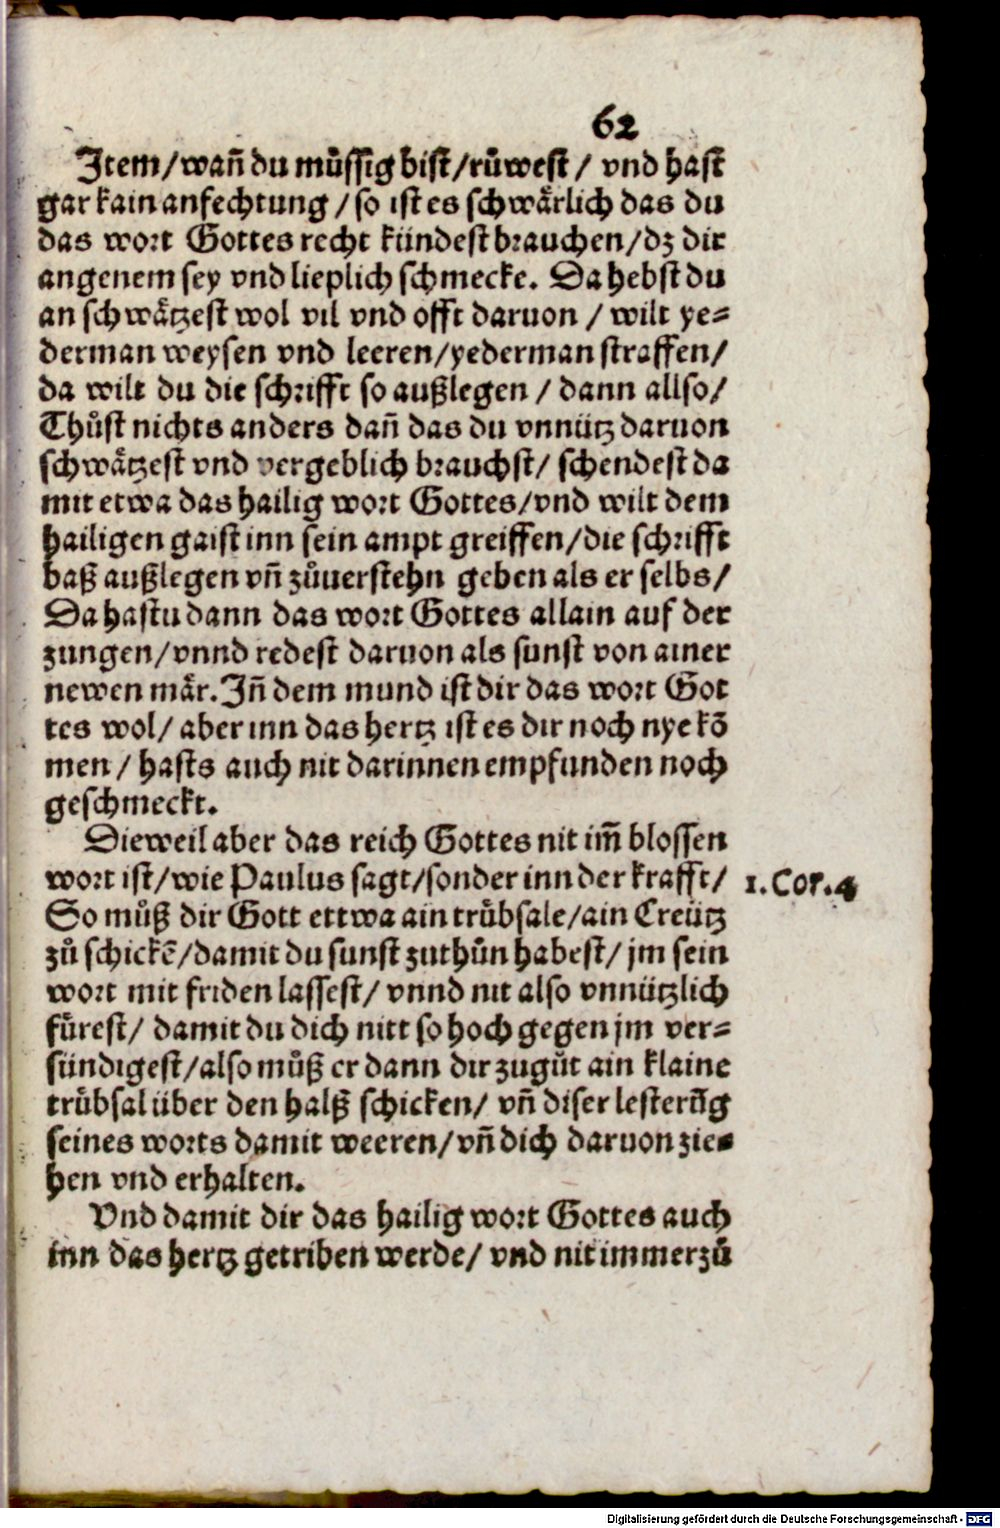 62
Item/wañ du muͤssig bist/ruͤwest/ vnd hast
gar kain anfechtung/so ist es schwaͤrlich das du
das wort Gottes recht kündest brauchen/dz dir
angenem sey vnd lieplich schmecke. Da hebst du
an schwaͤtzest wol vil vnd offt daruon/ wilt ye⸗
derman weysen vnd leeren/yederman straffen/
da wilt du die schrifft so außlegen/ dann allso/
Thuͦst nichts anders dañ das du vnnütz daruon
schwaͤtzest vnd vergeblich brauchst/ schendest da
mit etwa das hailig wort Gottes/vnd wilt dem
hailigen gaist inn sein ampt greiffen/die schrifft
baß außlegen vñ zuͦuerstehn geben als er selbs/
Da hastu dann das wort Gottes allain auf der
zungen/vnnd redest daruon als sunst von ainer
newen maͤr. Iñ dem mund ist dir das wort Got
tes wol/ aber inn das hertz ist es dir noch nye kõ
men/ hasts auch nit darinnen empfunden noch
geschmeckt.
Dieweil aber das reich Gottes nit im̃ blossen
wort ist/wie Paulus sagt/sonder inn der krafft/
1. Cor. 4
So muͦß dir Gott ettwa ain truͤbsale/ain Creütz
zuͦ schickẽ/damit du sunst zuthuͦn habest/ jm sein
wort mit friden lassest/ vnnd nit also vnnützlich
fuͤrest/ damit du dich nitt so hoch gegen jm ver⸗
sündigest/also muͦß er dann dir zuguͦt ain klaine
truͤbsal über den halß schicken/ vñ diser lesterũg
seines worts damit weeren/vñ dich daruon zie⸗
hen vnd erhalten.
Vnd damit dir das hailig wort Gottes auch
inn das hertz getriben werde/ vnd nit immerzuͦ
Digitalisierung gefördert durch die Deutsche Forschungsgemeinschaft - DFG